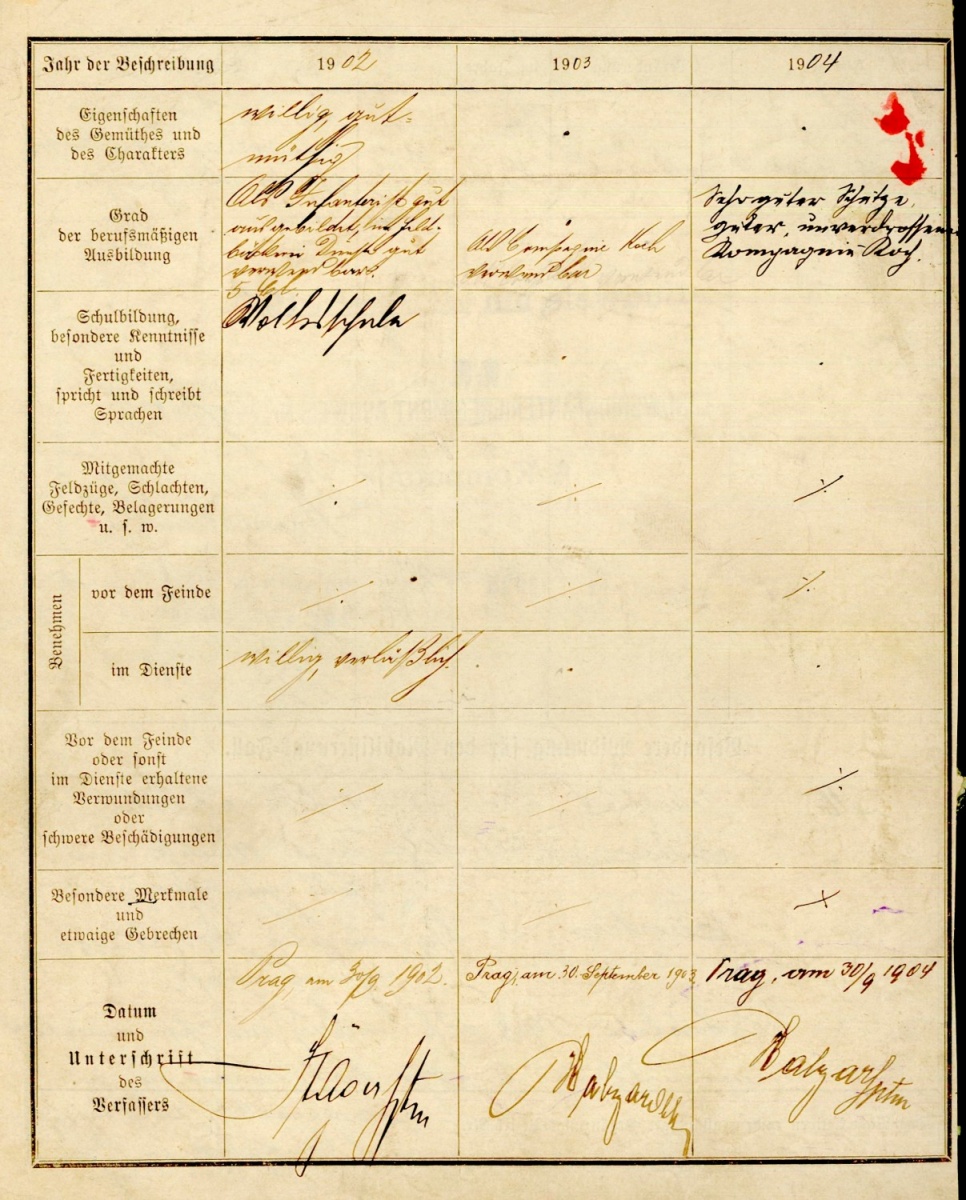 Jahr der Beschreibung
1902
1903
1904
Eigenschaften
des Gemüthes und
des Charakters
willig, gut-
müthig
Grad
der berufsmäßigen
Ausbildung
Als Infanterist gut
ausgebildet, im Feld-
bäckerei Dienst gut
verwendbar.
Als Compagnie Koch
verwendbar
Sehr guter Schütze,
guter, unverdrossener
Kompagnie-Koch.
Schulbildung,
besondere Kenntnisse
und
Fertigkeiten,
spricht und schreibt
Sprachen
Volksschule
Mitgemachte
Feldzüge, Schlachten,
Gefechte, Belagerungen
u. s. w.
Benehmen
vor dem Feinde
im Dienste
willig, verläßlich.
Vor dem Feinde
oder sonst
im Dienste erhaltene
Verwundungen
oder
schwere Beschädigungen
Besondere Merkmale
und
etwaige Gebrechen
Datum
und
Unterschrift
des
Verfassers
Prag, am 30/9 1902.
Prag, am 30. September 1903
Prag, am 30/9 1904